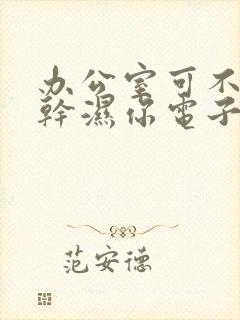 办公室可不
幹濕你電子
范安德